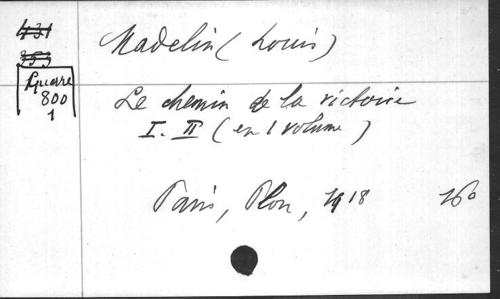 431
353
Guerre
800
1
Madelin (Louis)
Le chemin de la victoire
I. II (en 1 volume)
Paris, Plon, 1918 16°